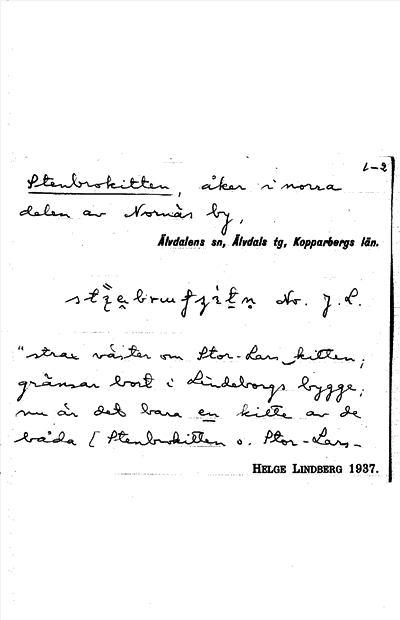 1-2
Stenbrokitten, åker i norra
delen av Nornäs by,
Älvdalens sn, Älvdals tg, Kopparbergs län.
No. J. L.
"strax väster om Stor-Lars_kitten;
gränsar bort i Lindeborgs bygge;
nu är det bara en kitte av de
båda [Stenbrokitten o. Stor-Lars-
HELGE LINDBERG 1937.